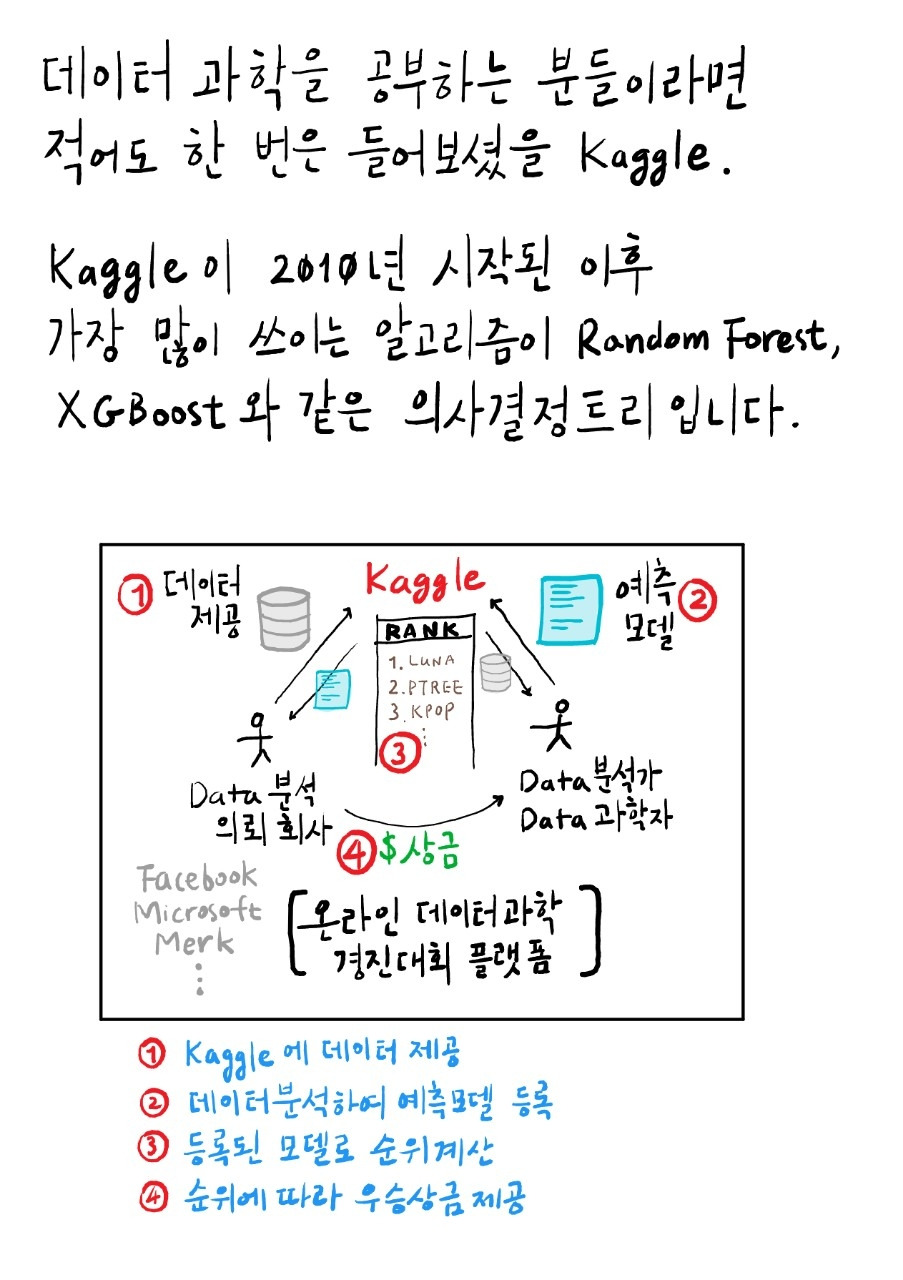 데이터 과학을 공부하는 분들이라면
적어도 한 번은 들어보셨을 Kaggle.
Kaggle이 2010년 시작된 이후
가장 많이 쓰이는 알고리즘이 Random Forest,
XGBoost와 같은 의사결정트리입니다.
① 데이터
제공
Kaggle
예측
모델 ②
RANK
1. LUNA
2. PTREE
3. KPOP
⋮
③
Data 분석
의뢰 회사
Data 분석가
Data 과학자
④ $상금
Facebook
Microsoft
Merk
⋮
[온라인 데이터과학
경진대회 플랫폼]
① Kaggle에 데이터 제공
② 데이터분석하여 예측모델 등록
③ 등록된 모델로 순위계산
④ 순위에 따라 우승상금 제공